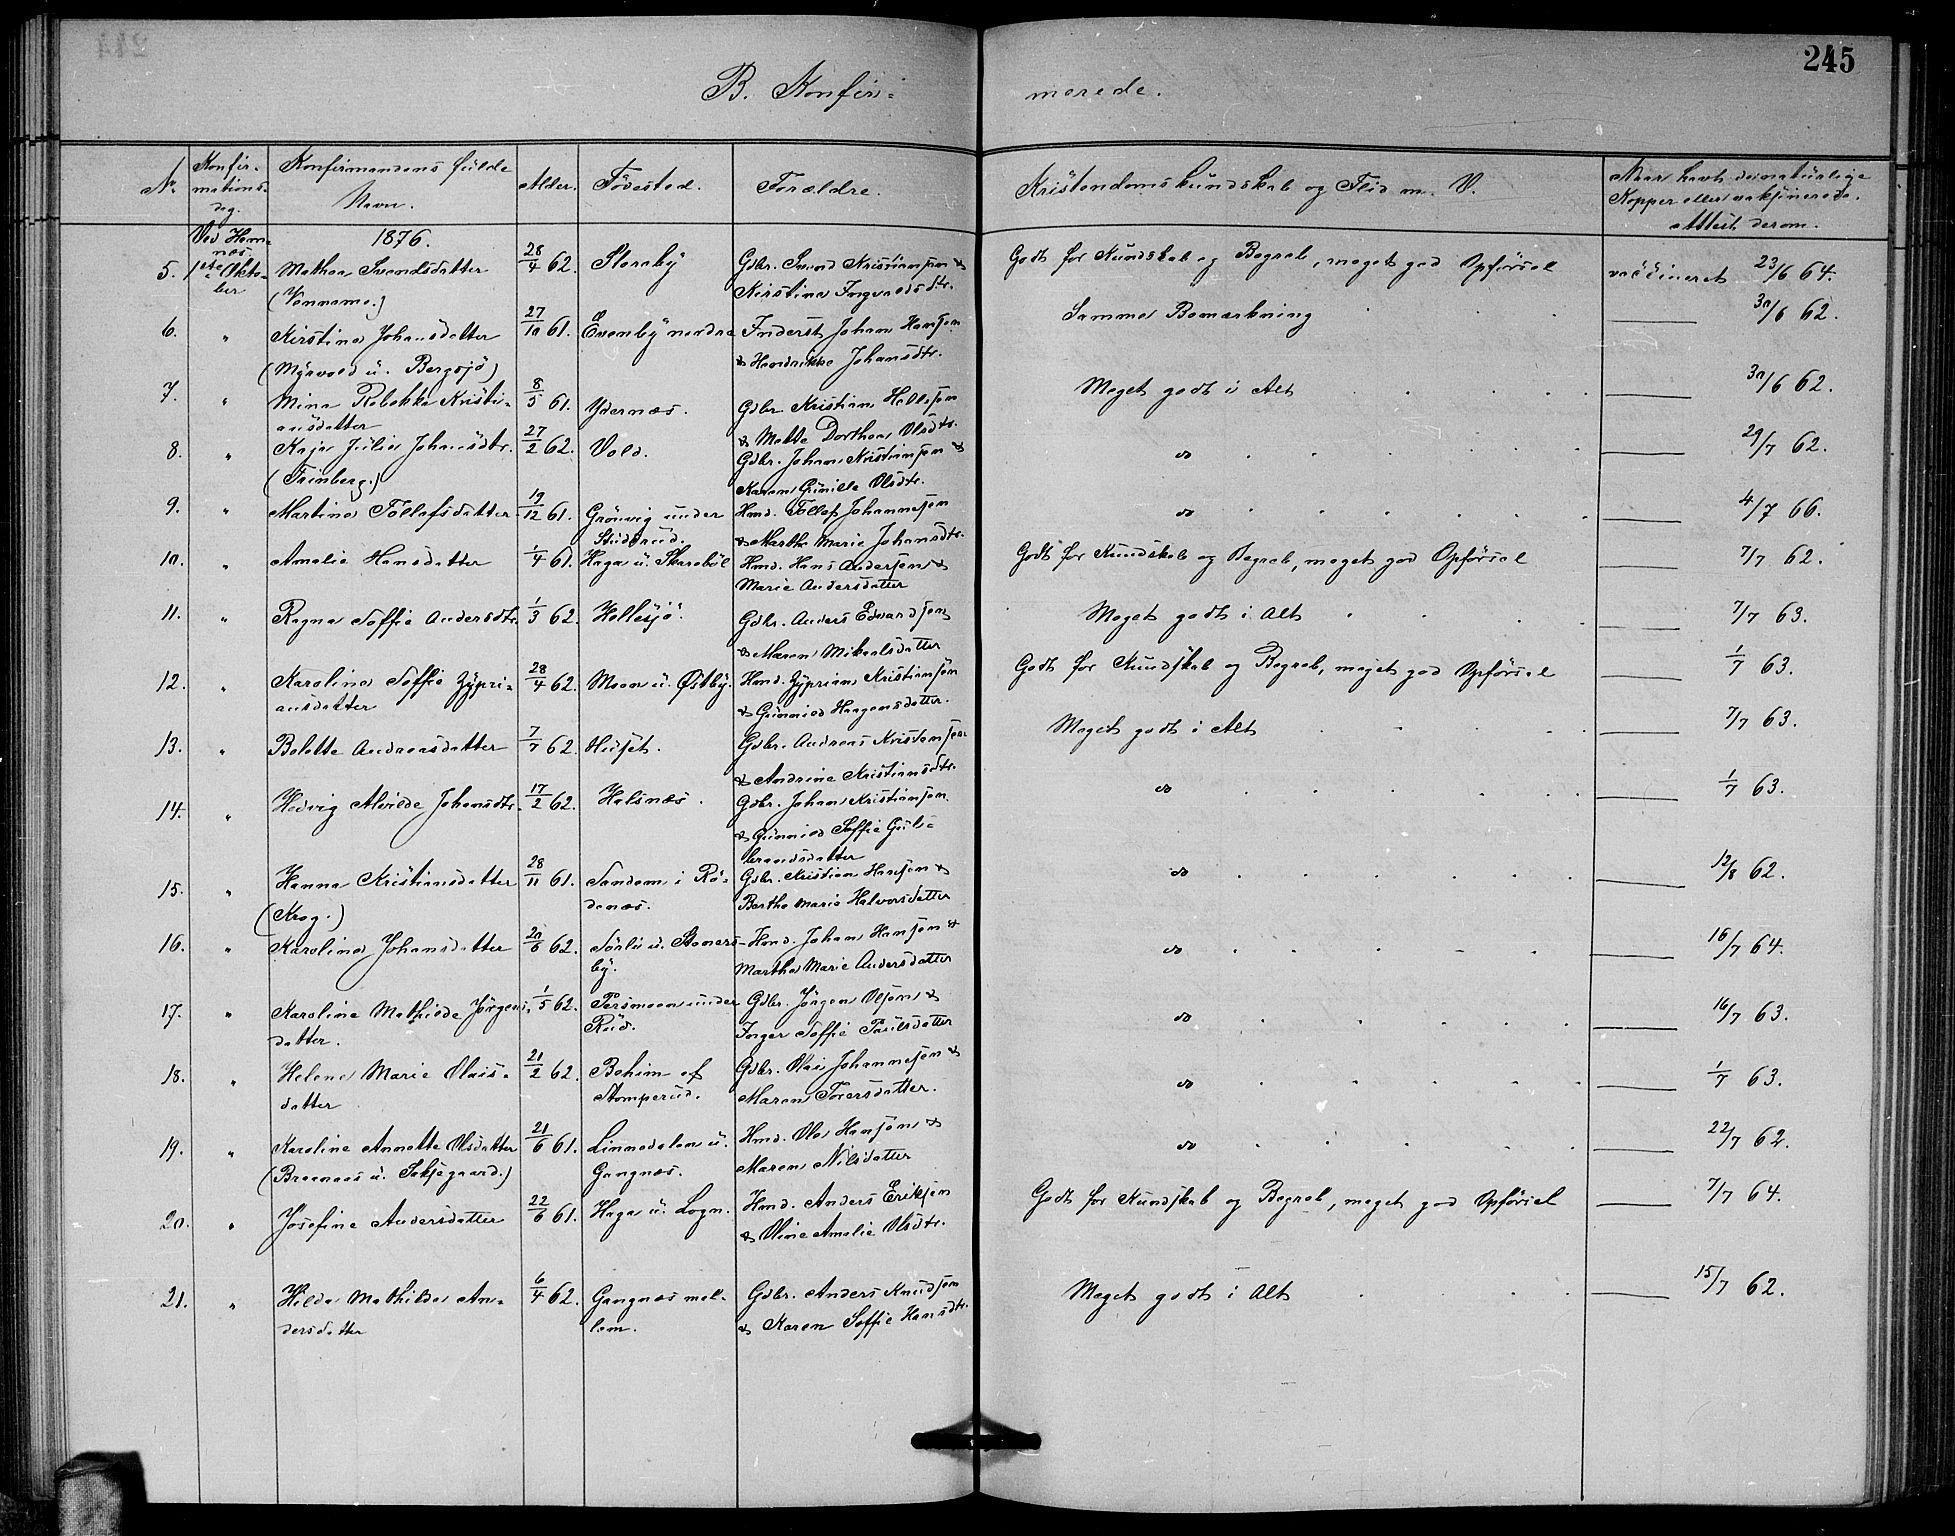 245
B. Konfir=
merede.
No. Konfir-
mations-
dag. Konfirmandens fulde
Navn. Alder. Födested. Forældre. Kristendomskundskab og Flid m. V. Naar havt de naturlige
Kopper eller vaksinerede.
attest derom.
Ved Hem-
næs 1876.
5. 1ste Okto-
ber Mathea Svendsdatter
(Vennemo.) 28/4 62. Storeby Gdbr. Svend Kristiansen &
Kirstine Ingvaldsdtr. Godt for Kundskab og Begreb, meget god Opförsel vaccineret 23/6 64.
6. " Kirstine Johansdatter
(Myrvold u. Bergsjö) 27/10 61. Evenby nordre Inderst Johan Hansen
& Hendrikke Johansdtr. Samme Bemærkning 30/6 62.
7. " Mina Rebekka Kristi-
ansdatter 8/5 61. Ydernæs. Gdbr. Kristian Hellesen
& Mette Dorthea Olsdtr. Meget godt i Alt 30/6 62.
8. " Kaja Julie Johansdtr.
(Trinberg.) 27/2 62. Vold. Gdbr. Johan Kristiansen &
Karen Gunille Olsdtr. do 29/7 62.
9. " Martine Tollefsdatter 19/12 61. Grönvig under
Studsrud. Hmd. Tollef Johannesen
& Marthe Marie Johansdtr. do 4/7 66.
10. " Amalie Hansdatter 1/4 61. Haga u. Skareböl Hmd. Hans Andersen &
Marie Andersdatter Godt for Kundskab og Begreb, meget god Opförsel 7/7 62.
11. " Ragna Soffie Andersdtr. 1/3 62. Hellesjö. Gdbr. Anders Edvardsen
& Maren Mikaelsdatter Meget godt i Alt 7/7 63.
12. " Karoline Soffie Zypri-
ansdatter 28/4 62. Moen u. Østby. Hmd. Zyprian Kristiansen
& Gunnild Haagensdatter. Godt for Kundskab og Begreb, meget god Opförsel 1/7 63.
13. " Bolette Andreasdatter 7/7 62. Huset. Gdbr. Andreas Kristensen
& Andrine Kristiansdtr. Meget godt i Alt 7/7 63.
14. " Hedvig Alvilde Johansdtr. 17/2 62. Helsnæs. Gdbr. Johan Kristiansen
& Gunnild Soffie Gul-
brandsdatter do 1/7 63.
15. " Hanna Kristiansdatter
(Krog.) 28/11 61. Sandem i Rö-
denæs. Gdbr. Kristian Hansen &
Berthe Marie Halvorsdatter do 12/8 62.
16. " Karoline Johansdatter 20/6 62. Sörli u. Steners-
by. Hmd. Johan Hansen &
Marthe Marie Andersdatter do 16/7 64.
17. " Karoline Mathilde Jörgens-
datter. 1/5 62. Persmoen under
Rud. Gdbr. Jörgen Olsen &
Inger Soffie Paulsdatter do 16/7 63.
18. " Helene Marie Olais-
datter 21/2 62. Bohim af
Stomperud. Gdbr. Olai Johannesen &
Maren Torersdatter. do 1/7 63.
19. " Karoline Annette Olsdatter
(Braenaas u. Skjegaard.) 21/6 61. Linnedalen u.
Gangnæs. Hmd. Ole Hansen &
Maren Nilsdatter do 22/7 62.
20. " Josefine Andersdatter 22/6 61. Haga u. Logn. Hmd. Anders Eriksen
& Oline Amalie Olsdtr. Godt for Kundskab og Begreb, meget god Opförsel 7/7 64.
21. " Hilda Mathilde An-
dersdatter 6/4 62. Gangnæs mel-
lem. Gdbr. Anders Knudsen
& Karen Soffie Hansdtr. Meget godt i Alt 15/7 62.